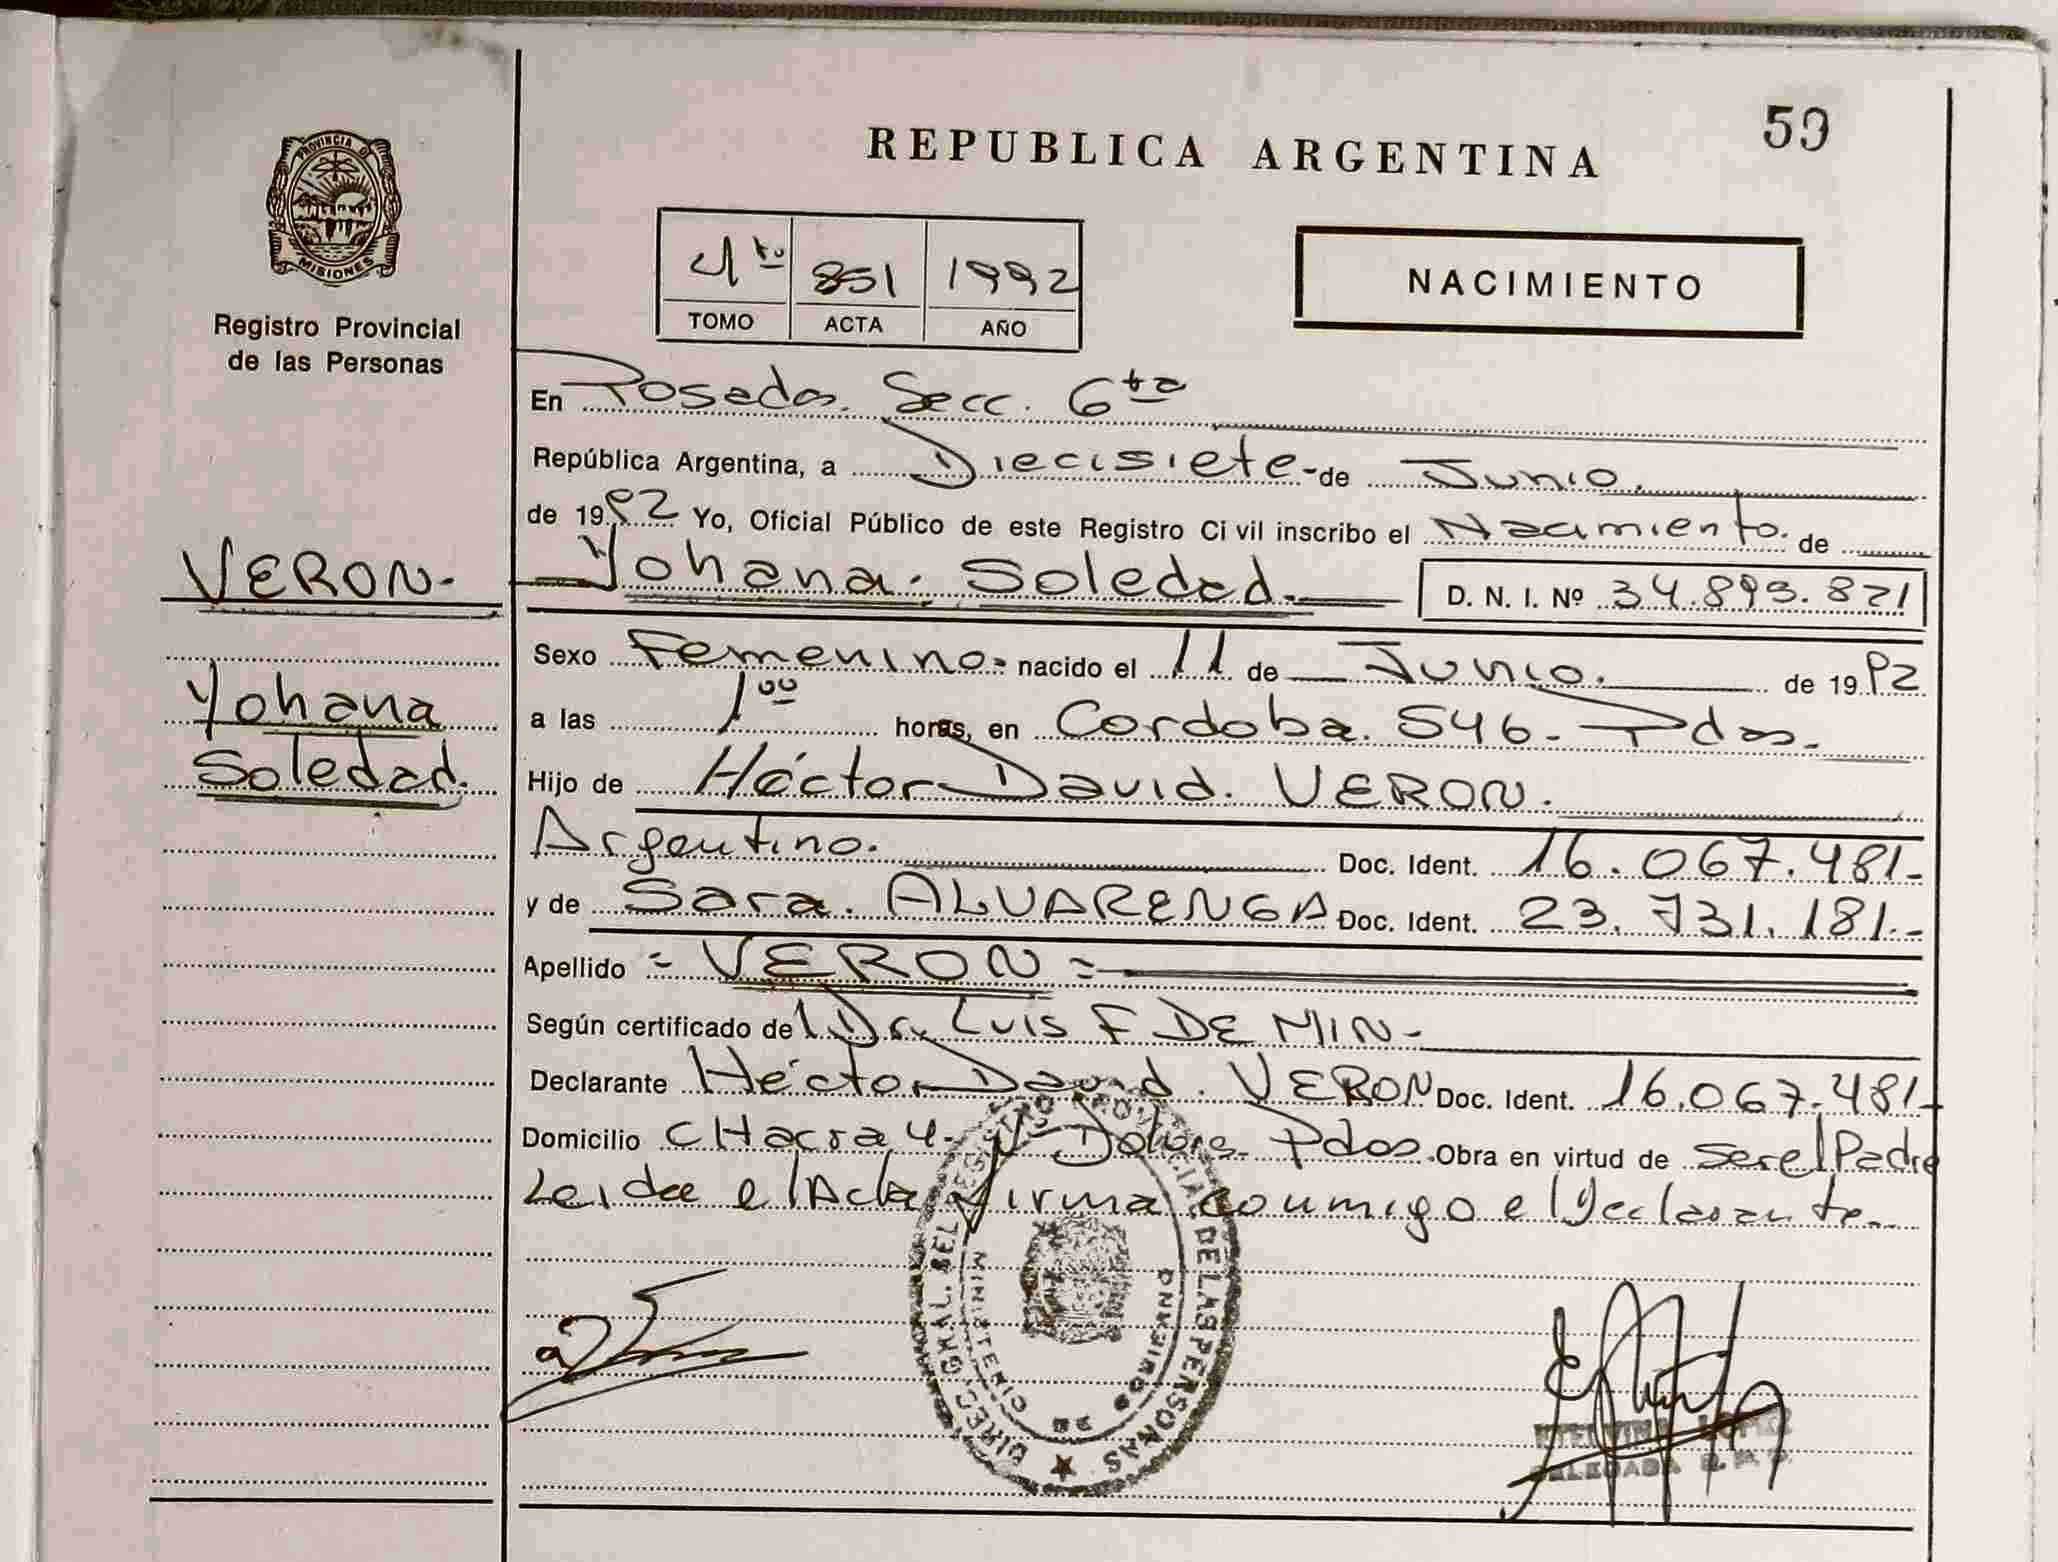 59
REPUBLICA ARGENTINA
PROVINCIA D
MISIONES
Registro Provincial
de las Personas
4to 851 1992
TOMO ACTA AÑO
NACIMIENTO
En Posadas. Secc. 6ta
República Argentina, a Diecisiete- de Junio.
de 1992 Yo, Oficial Público de este Registro Civil inscribo el Nacimiento. de
Yohana. Soledad. D. N. I. Nº 34.893.821
VERON-
Yohana
Soledad.
Sexo Femenino- nacido el 11 de Junio. de 1992
a las 1 00 horas, en Cordoba. 546- Pdas.
Hijo de Héctor David. VERON.
Argentino. Doc. Ident. 16.067.481-
y de Sara. ALVARENGA Doc. Ident. 23.731.181.-
Apellido = VERON =
Según certificado del Dr. Luis F DE MIN-
Declarante Héctor David. VERON Doc. Ident. 16.067.481-
Domicilio CHacra 4- Pdas. Obra en virtud de Ser el Padre
Leida el Acta firma conmigo el Declarante.
DIREC. GRAL. DEL REGISTRO PROVINCIAL DE LAS PERSONAS
MINISTERIO DE GOBIERNO